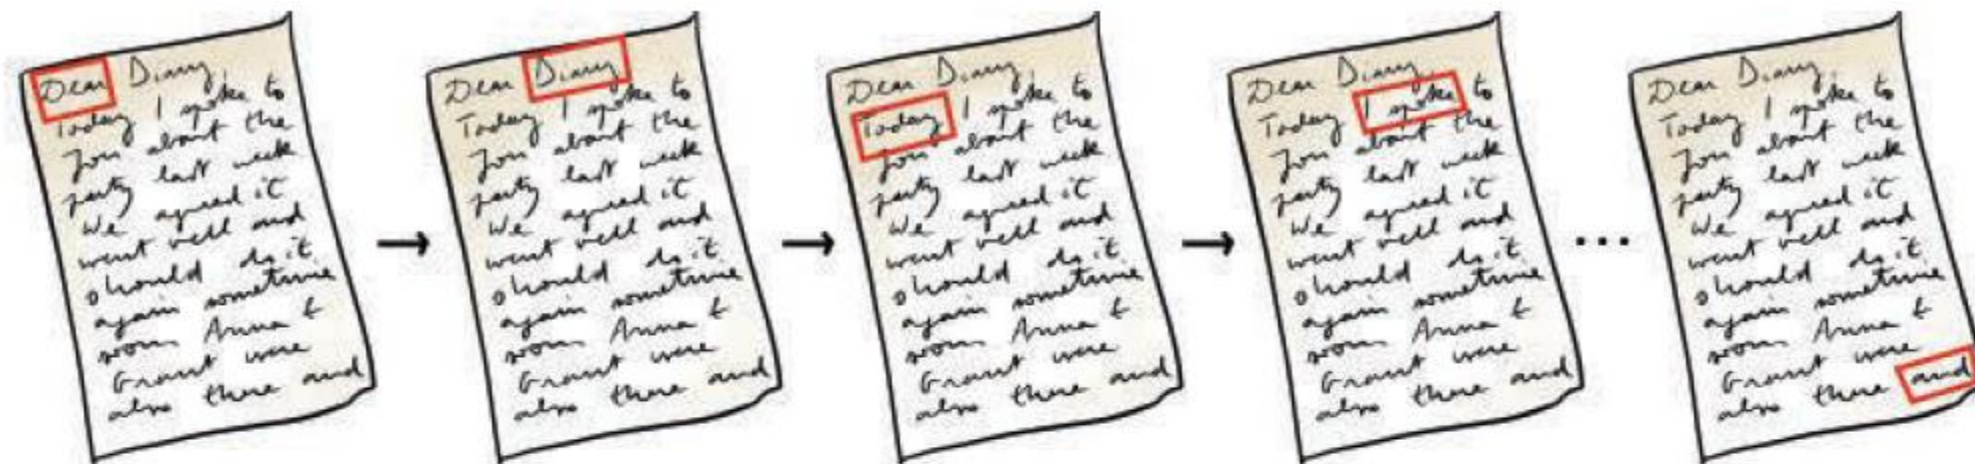 Dear Diary,
Today I spoke to
Jon about the
party last week
We agreed it
went well and
should do it
again sometime
soon Anna &
Grant were
also there and
Dear Diary,
Today I spoke to
Jon about the
party last week
We agreed it
went well and
should do it
again sometime
soon Anna &
Grant were
also there and
Dear Diary,
Today I spoke to
Jon about the
party last week
We agreed it
went well and
should do it
again sometime
soon Anna &
Grant were
also there and
Dear Diary,
Today I spoke to
Jon about the
party last week
We agreed it
went well and
should do it
again sometime
soon Anna &
Grant were
also there and
Dear Diary,
Today I spoke to
Jon about the
party last week
We agreed it
went well and
should do it
again sometime
soon Anna &
Grant were
also there and